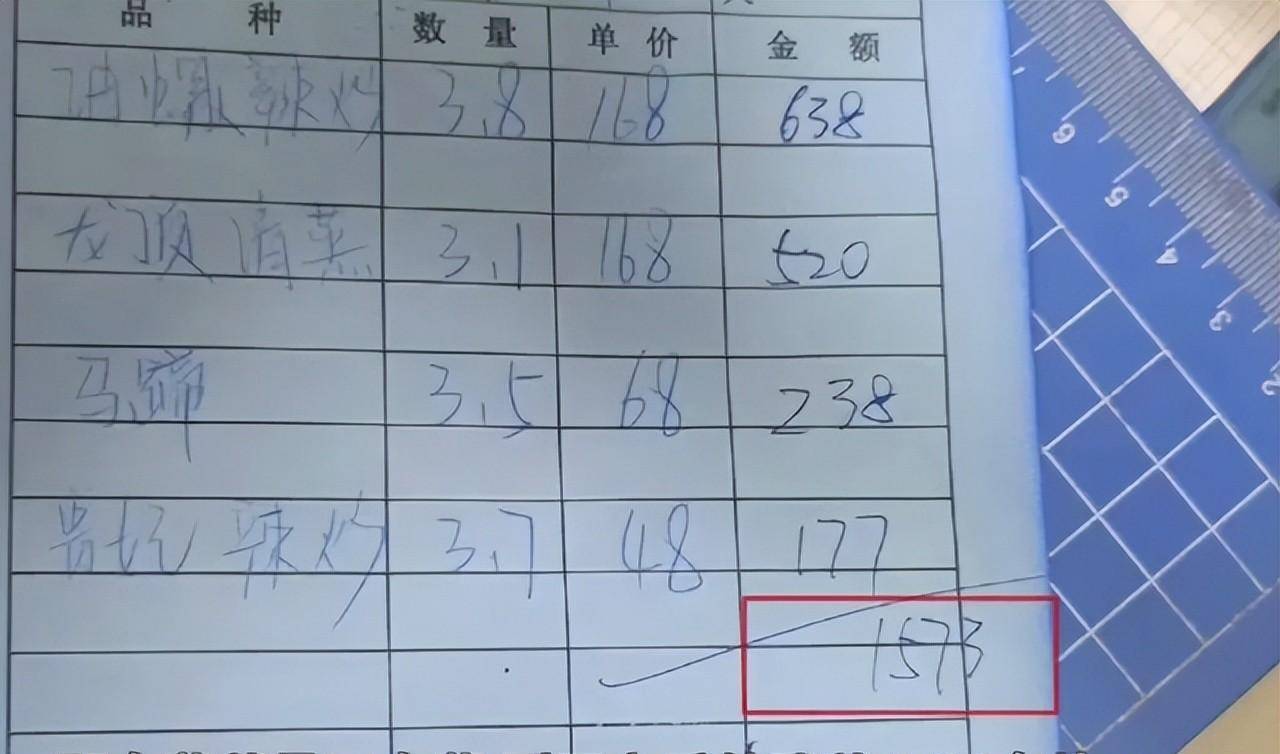 品 种 数 量 单 价 金 额
辣炒 3.8 168 638
龙 清蒸 3.1 168 520
马蹄 3.5 68 238
辣炒 3.7 48 177
1573
6
5
4
3
2